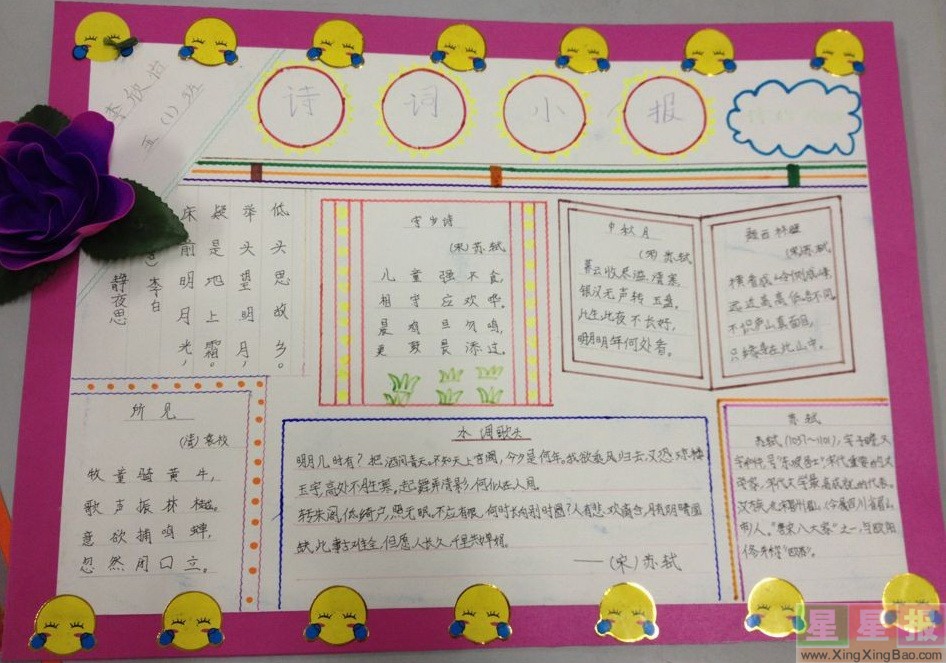 诗词小报
五(1)班
静夜思
李白
床前明月光，
疑是地上霜。
举头望明月，
低头思故乡。
守岁诗
(宋)苏轼
儿童强不食，
相守应欢哗。
晨鸡旦勿鸣，
更鼓畏添过。
中秋月
(宋)苏轼
暮云收尽溢清寒，
银汉无声转玉盘。
此生此夜不长好，
明明年何处看。
(宋)苏轼
横看成岭侧成峰
远近高低各不同。
不识庐山真面目，
只缘身在此山中。
所见
(清)袁枚
牧童骑黄牛，
歌声振林樾。
意欲捕鸣蝉
忽然闭口立。
水调歌头
明月几时有？把酒问青天。不知天上宫阙，今夕是何年。我欲乘风归去又恐琼楼
玉宇，高处不胜寒，起舞弄清影，何似在人间。
转朱阁，低绮户，照无眠。不应有恨，何时长向别时圆？人有悲欢离合，月有阴晴圆
缺，此事古难全，但愿人长久，千里共婵娟。
——(宋)苏轼
苏轼
苏轼(1037～1101)，字子瞻又
字和仲，号"东坡居士"，宋代重要的文
学家，宋代文学最高成就的代表。
汉族，北宋眉州眉山(今属四川省眉山
市)人。"唐宋八大家"之一，与欧阳
星星报
www.XingXingBao.com